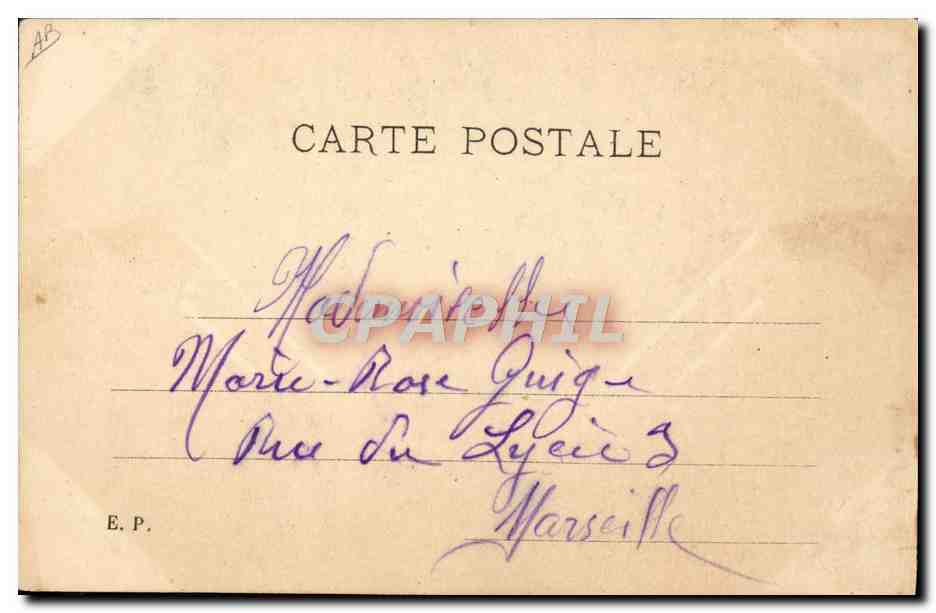 AB
CARTE POSTALE
Mademoiselle
CPAPHIL
Marie-Rose Guigue
Rue du Lycée 3
Marseille
E. P.